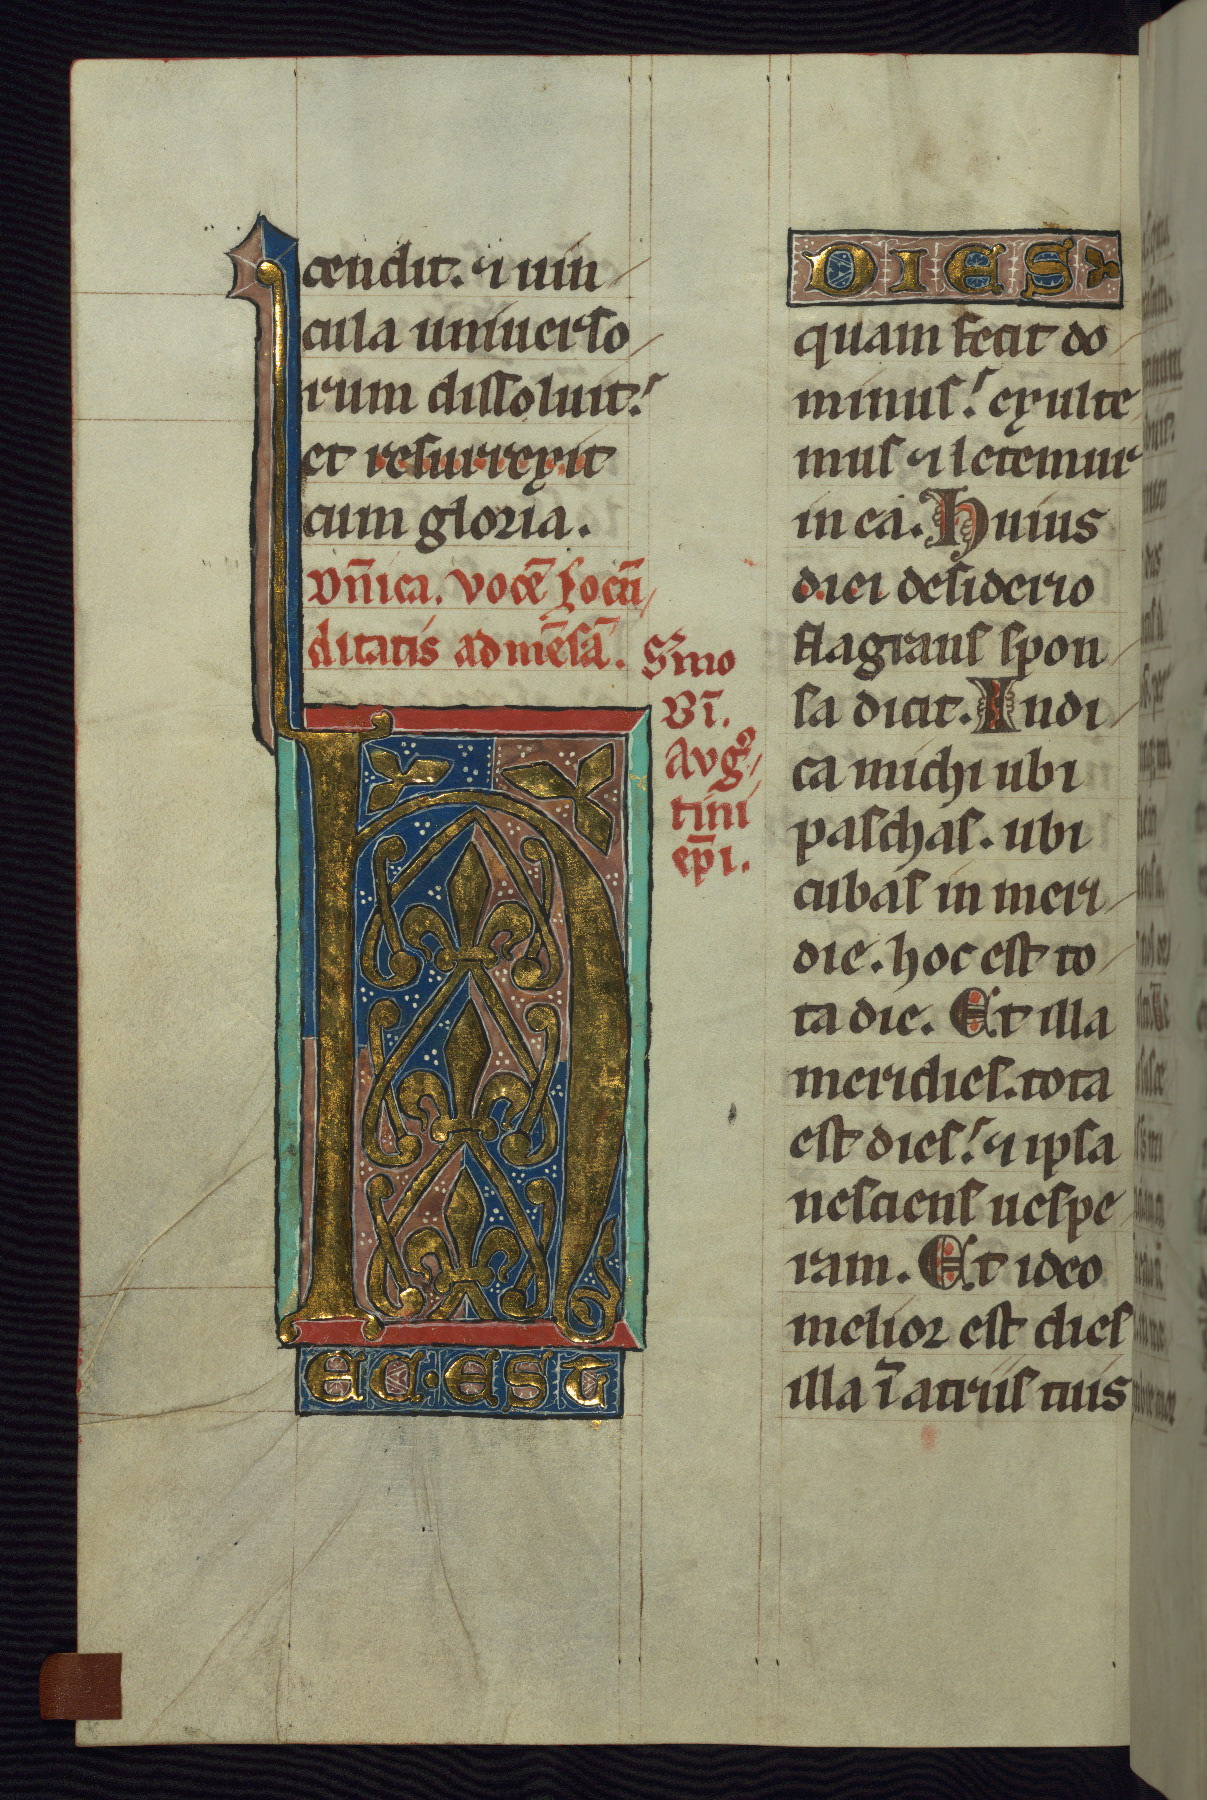 cendit. ⁊ uin
cula uniuerso
rum dissoluit.
et resurrexit
cum gloria.
Dn̄ica. vocē Iocū
ditatis ad mēsā.
S̄mo
Bī.
Avgꝰ
tini
ep̄i.
H
EC. EST
DIES
quam fecit do
minus. exulte
mus ⁊ letemur
in ea. Huius
diei desiderio
flagrans spon
sa dicit. Indi
ca michi ubi
paschas. ubi
cubas in meri
die. hoc est to
ta die. Et illa
meridies. tota
est dies. ⁊ ipsa
nesciens uespe
ram. Et ideo
melior est dies
illa ī atriis tuis